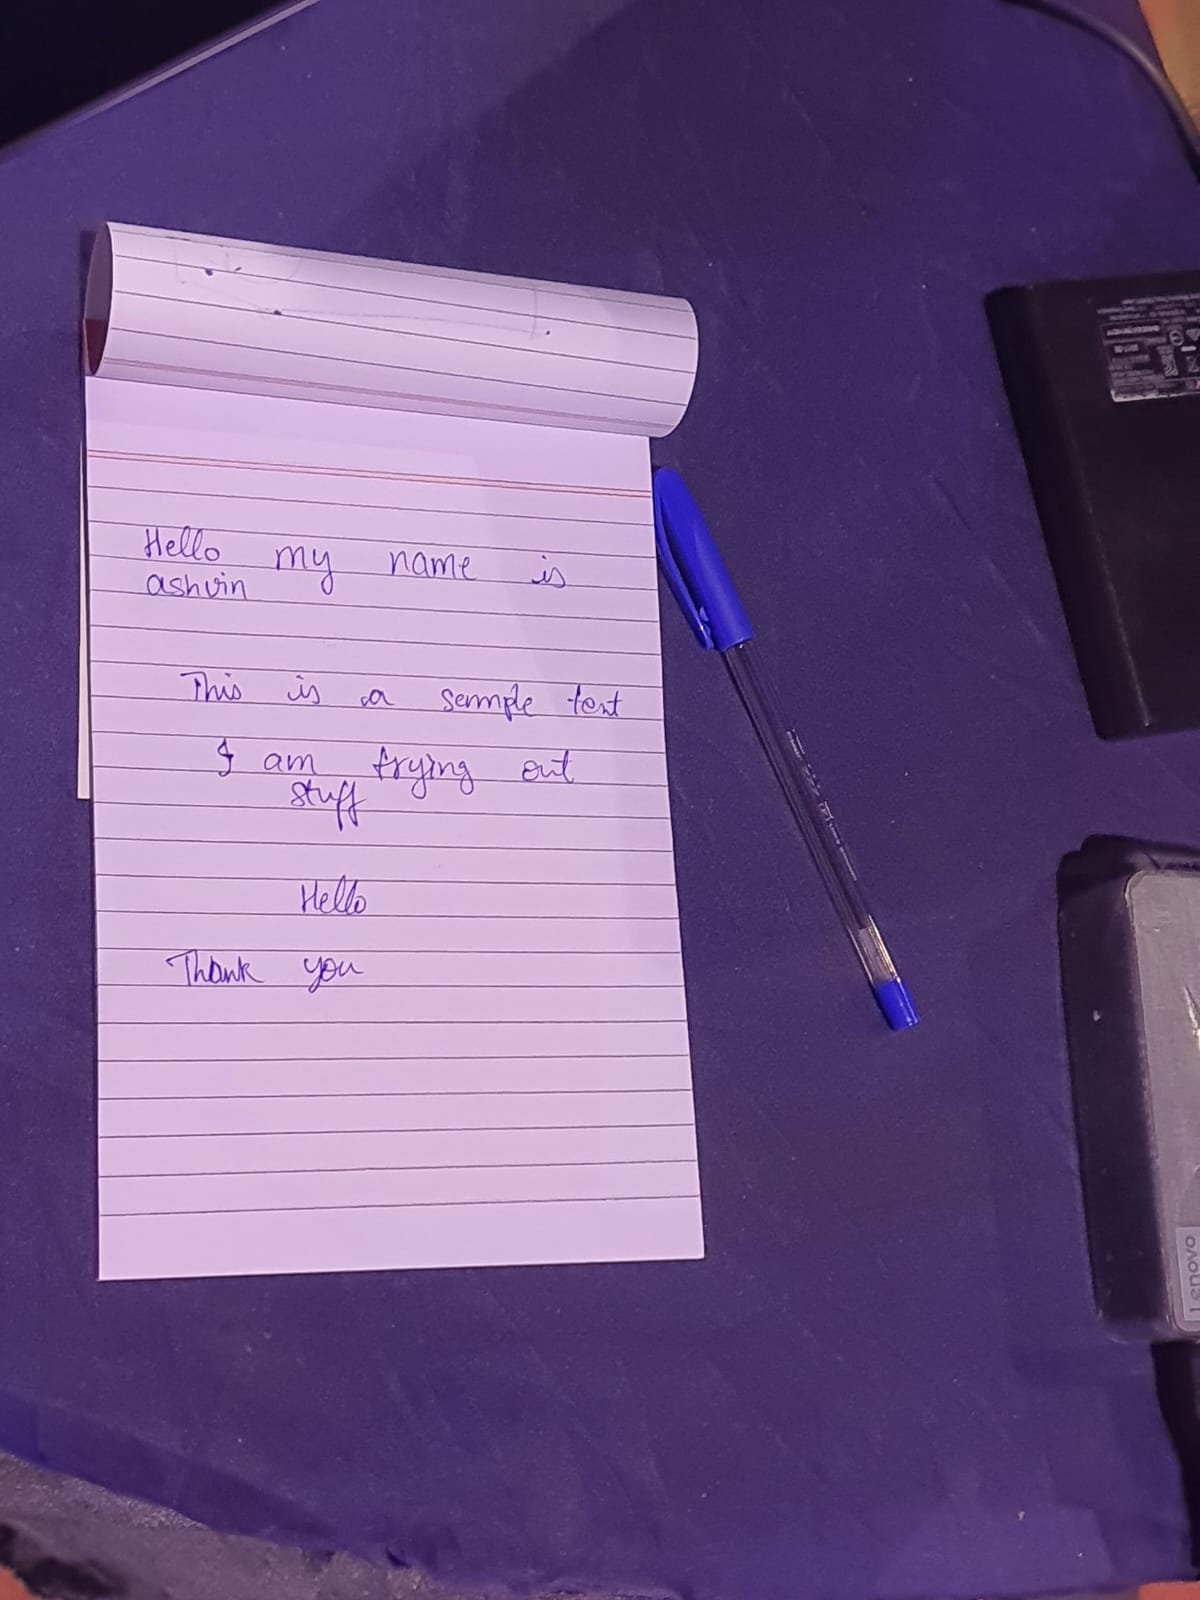 Hello my name is
ashvin
This is a sample text
I am trying out
stuff
Hello
Thank you
Lenovo